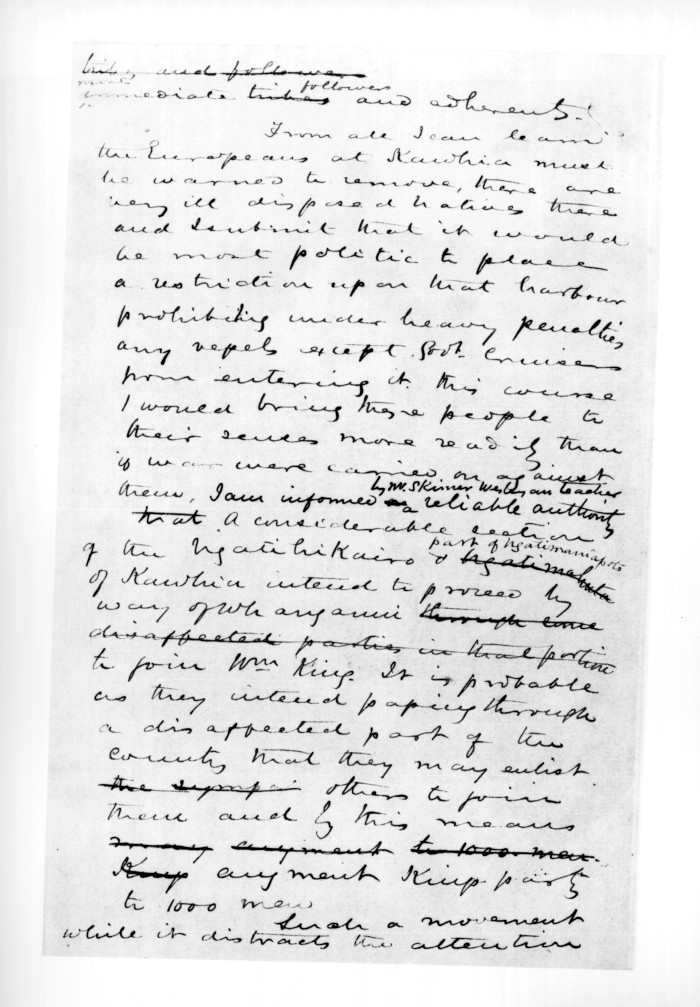 tribe and followers
more followers
immediate tribes and adherents.
From all I can learn
the Europeans at Kawhia must
be warned to remove, there are
very ill disposed natives there
and I submit that it would
be most politic to place
a restriction upon that harbour
prohibiting under heavy penalties
any vessels except Govt. Cruisers
from entering it. this course
I would bring these people to
their senses more readily than
if war were carried on against
by Mr. Skinner Wesleyan teacher
them, I am informed on a reliable authority
that A considerable section
part of Ngatimaniapoto
of the Ngatihikairo & Ngatimahuta
of Kawhia intend to proceed by
way of Whanganui through some
disaffected parties in that portion
to join Wm King. It is probable
as they intend passing through
a disaffected part of the
country that they may enlist
the sympa others to join
them and by this means
many augment to 1000 men.
Kings augment Kings party
to 1000 men
Such a movement
while it distracts the attention